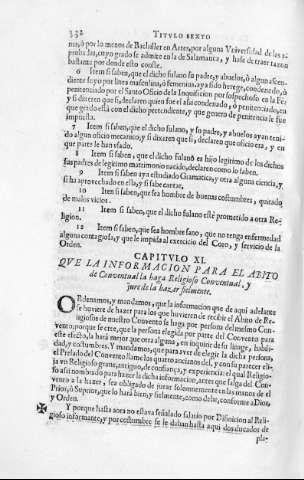 332 TITVLO SEXTO
nas, ò por lo menos de Bachiller en Artes, por alguna Vniversidad de las a-
probadas, cuyo grado se admite en la de Salamanca, y hase de traer tanto
bastante por donde esto conste.
6 Item si saben, que el dicho fulano su padre, y abuelos, ò algun ascen-
diente suyo por linea masculina, ò femenina, aya sido herege, condenado, ò
penitenciado por el Santo Oficio de la Inquisicion por sospechoso en la Fè
y si dixeren que si, declaren quien fue el assi condenado, ò penitenciado, en
que grado està con el dicho pretendiente, y que genero de penitencia le fue
impuesta.
7 Item si saben, que el dicho fulano, y su padre, y abuelos ayan teni-
do algun oficio mecanico; y si dixeren que si, declaren que oficio era, y en
que parte le han vsado.
8 Item si saben, que el dicho fulano es hijo legitimo de los dichos
sus padres de legitimo matrimonio nacido, declaren como lo saben.
9 Item si saben aya estudiado Gramatica, y otra alguna ciencia, y
si ha aprovechado en ella, y si sabe cantar.
10 Item si saben, que sea hombre de buenas costumbres, quitado
de malos vicios.
11 Item si saben, que el dicho fulano estè prometido a otra Re-
ligion.
12 Item si saben, que sea hombre sano, que no tenga enfermedad
alguna contagiosa, y que le impida al exercicio del Coro, y servicio de la
Orden.
CAPITVLO XI.
QVE LA INFORMACION PARA EL ABITO
de Conventual la haga Religioso Conventual, y
jure de la hazer fielmente.
ORdenamos, y mandamos, que la informacion que de aqui adelante
se huviere de hazer para los que huvieren de recibir el Abito de Re-
ligiosos de nuestro Convento se haga por persona del mesmo Con-
vento; porque se cree, que la persona elegida por parte del Convento para
este efecto, la harà mejor que otra alguna, en inquirir del linage, habili-
dad, y costumbres. Y mandamos, que para aver de elegir la dicha persona,
el Prelado del Convento llame los quatro ancianos del, y con su parecer eli-
ja vn Religioso grave, antiguo, de confiança, y experiencia: el qual Religio-
so assi nombrado para hazer la dicha informacion, antes que salga del Con-
vento a la hazer, sea obligado de jurar solemnemente en las manos del
Prior, ò Suprior, que lo harà bien, y fielmente, como debe, conforme a Dios,
y Orden.
Y porque hasta aora no estava señalado salario por Difinicion al Reli-
gioso informante, y por costumbre se le daban hasta aqui dos ducados de
pla-